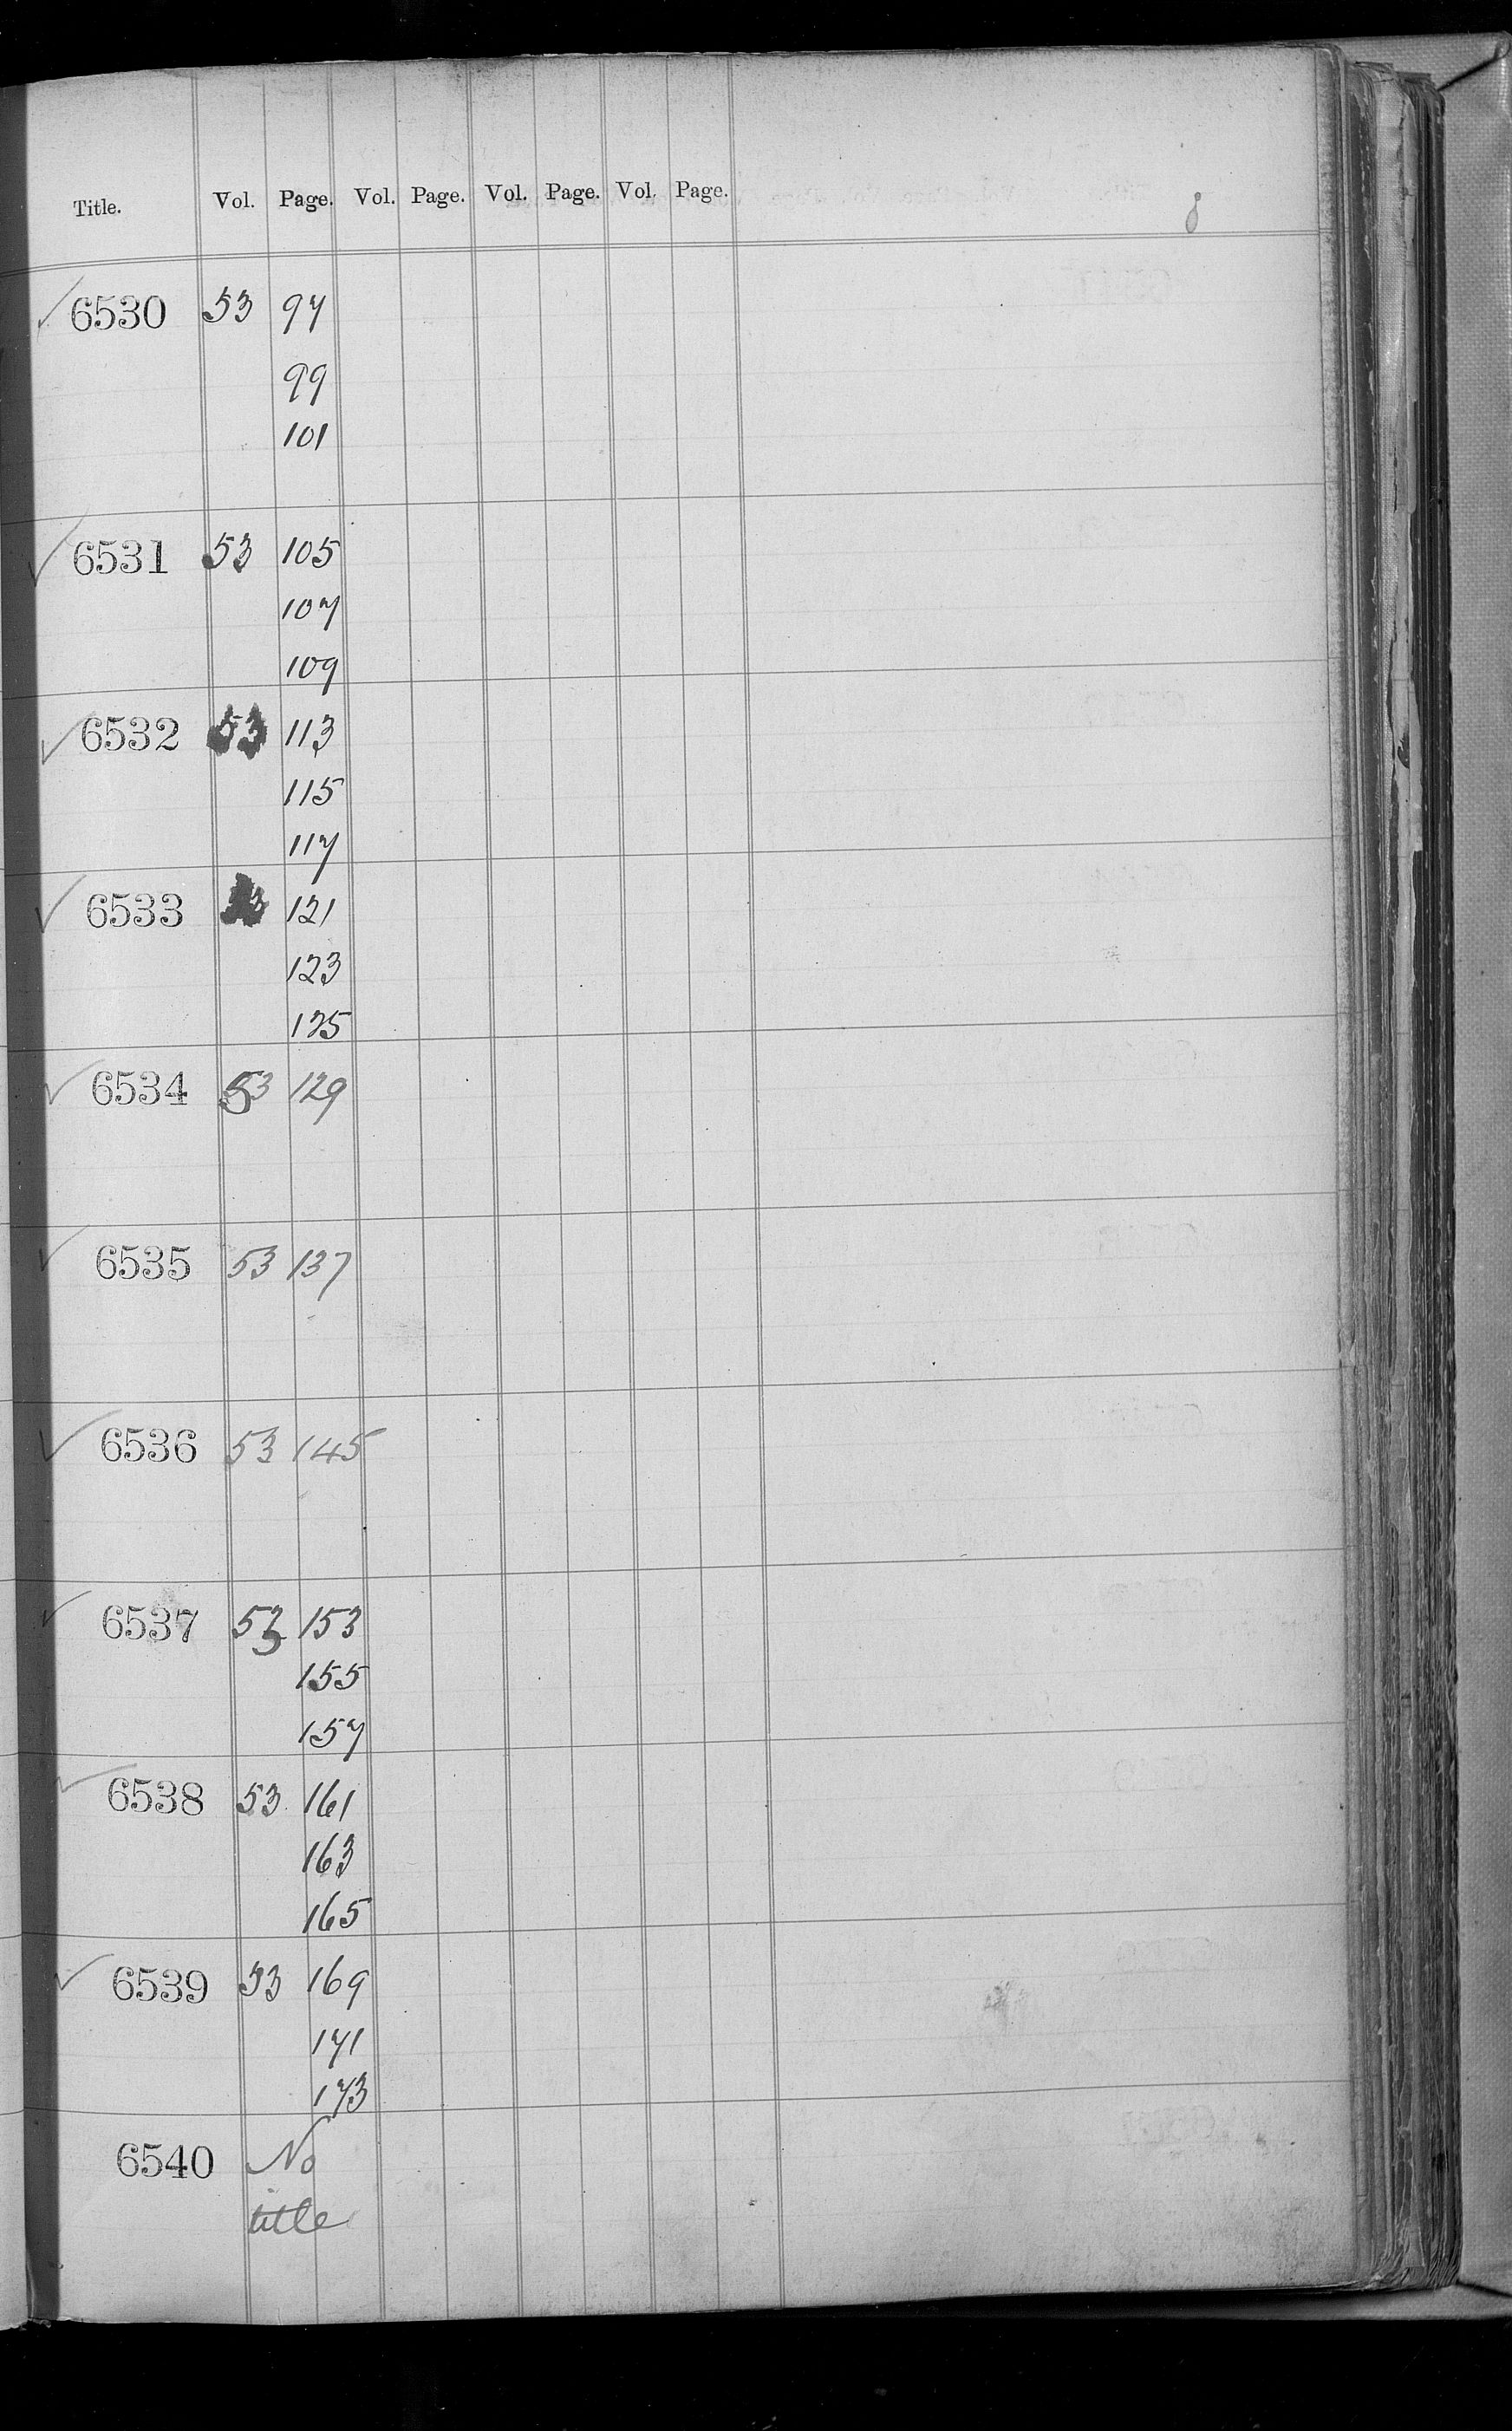 Title. Vol. Page. Vol. Page. Vol. Page. Vol. Page.
6530 53 97
99
101
6531 53 105
107
109
6532 53 113
115
117
6533 53 121
123
125
6534 53 129
6535 53 137
6536 53 145
6537 53 153
155
157
6538 53 161
163
165
6539 53 169
171
173
6540 No
title